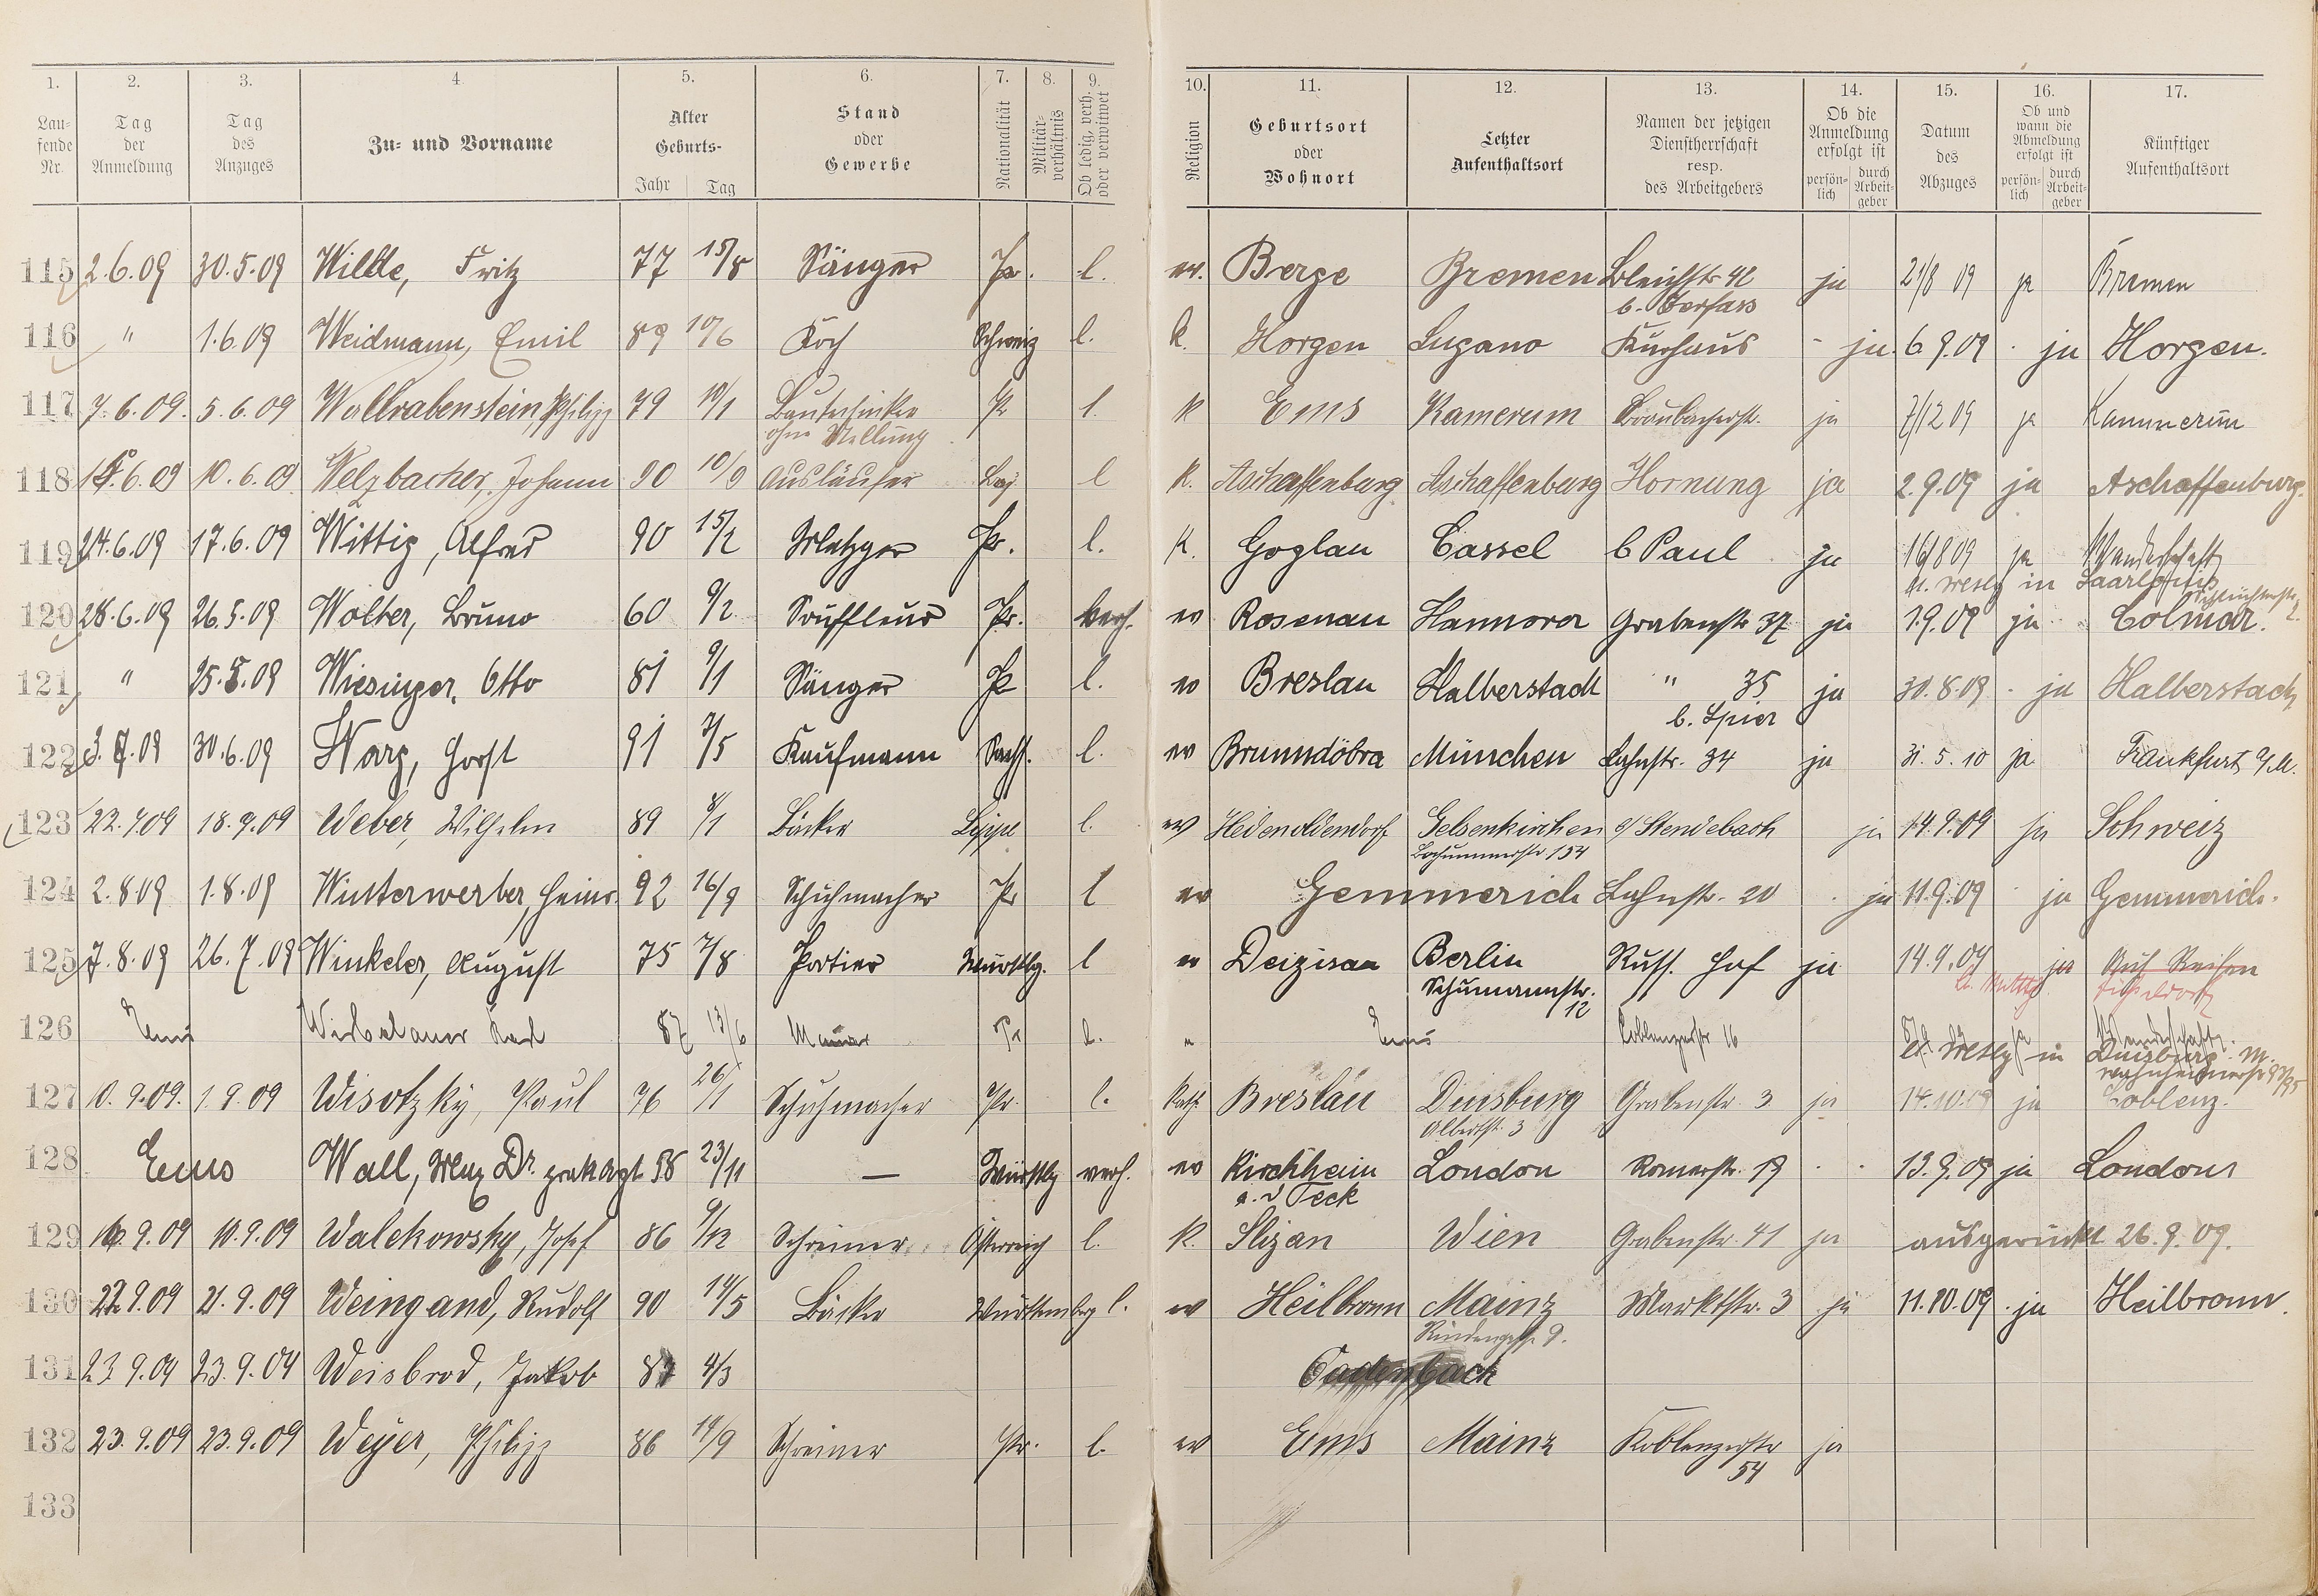 1. 2. 3. 4. 5. 6. 7. 8. 9. 10. 11. 12. 13. 14. 15. 16. 17.
Lau-fende Nr. Tag der Anmeldung Tag des Anzuges Zu- und Vorname Alter Geburts- Jahr Tag Stand oder Gewerbe Nationalität Militär-verhältnis Ob ledig, verh. oder verwitwet Religion Geburtsort oder Wohnort Letzter Aufenthaltsort Namen der jetzigen Dienstherrschaft resp. des Arbeitgebers Ob die Anmeldung erfolgt ist persön-lich durch Arbeit-geber Datum des Abzuges Ob und wann die Abmeldung erfolgt ist persön-lich durch Arbeit-geber Künftiger Aufenthaltsort
115 2.6.09 30.5.09 Wilde, Fritz 77 15/8 Sänger Pr. l. ev. Berge Bremen Bleichstr 42 ja 21/8 09 ja Bremen
116 " 1.6.09 Weidmann, Emil 89 10/6 Koch Schweiz l. k. Horgen Lugano Kurhaus - ja. 6.9.09 · ja Horgen.
117 7.6.09. 5.6.09 Wallrabenstein, Philipp 79 10/1 Bautechniker Pr l. k Ems Kamerum Braubacherstr. ja 7/12 09 ja Kammerun
ohne Stellung
118 6.09 10.6.09 Welzbacher, Johann 90 10/9 Ausläufer Bay l k. Aschaffenburg Aschaffenburg Hornung ja 2.9.09 ja Aschaffenburg.
119 24.6.09 17.6.09 Wittig, Alfred 90 15/2 Metzger Pr. l. k. Goglau Cassel b Paul ja 16/8 09 ja Wanderschaft
in Saarlouis
120 28.6.09 26.5.09 Wolter, Bruno 60 9/2 Souffleur Pr. verh. ev Rosenau Hannover Grabenstr 37 ja 1.9.09 ja Colmar.
121 " 25.5.09 Wiesinger, Otto 81 9/1 Sänger Pr l. ev Breslau Halberstadt " 35 ja 30.8.09 · ja Halberstadt
b. Spier
122 3.7.09 30.6.09 Warg, Horst 91 7/5 Kaufmann Sachs. l. ev Brunndöbra München Lahnstr. 34 ja 31.5.10 ja Frankfurt a/M.
123 22.7.09 18.9.09 Weber, Wilhelm 89 8/1 Bäcker Lippe l. ev Hedenoldendorf Gelsenkirchen Stendebach ja 14.9.09 ja Schweiz
Bochummerstr 134
124 2.8.09 1.8.09 Winterwerber, Heinr. 92 16/9 Schuhmacher Pr l ev Gemmerich Lahnstr. 20 · ja 11.9.09 · ja Gemmerich.
125 7.8.09 26.7.09 Winkeler, August 75 7/8 Portier Württbg. l ev Deizisau Berlin Russ. Hof ja 14.9.09 ja Auf Reisen
Schumannstr. 12
126 Ems 87 13/6 Maurer Pr l. " Ems Coblenzerstr 16 Wanderschaft
in Duisburg
127 10.9.09. 1.9.09 Wisotzky, Paul 76 26/1 Schuhmacher Pr. l. kath. Breslau Duisburg Grabenstr. 3 ja 14.10.09 ja Coblenz.
Albertstr. 3
128 Ems Wall, Max Dr. prakt Arzt 58 23/11 — Württbg verh. ev Kirchheim London Romerstr. 19 · · 13.9.09 ja London
a. d Teck
129 10.9.09 10.9.09 Walekowsky, Josef 86 9/12 Schreiner Österreich l. k. Slizan Wien Grabenstr. 41 ja ausgerückt 26.9.09.
130 22.9.09 21.9.09 Weingand, Rudolf 90 14/5 Bäcker Württembg l. ev Heilbronn Mainz Marktstr. 3 ja 11.10.09 · ja Heilbronn.
131 23.9.09 23.9.09 Weisbrod, Jakob 87 4/3 Dadenbach
132 23.9.09 23.9.09 Weyer, Philipp 86 14/9 Schreiner Pr. l. ev Ems Mainz Koblenzerstr ja
54
133